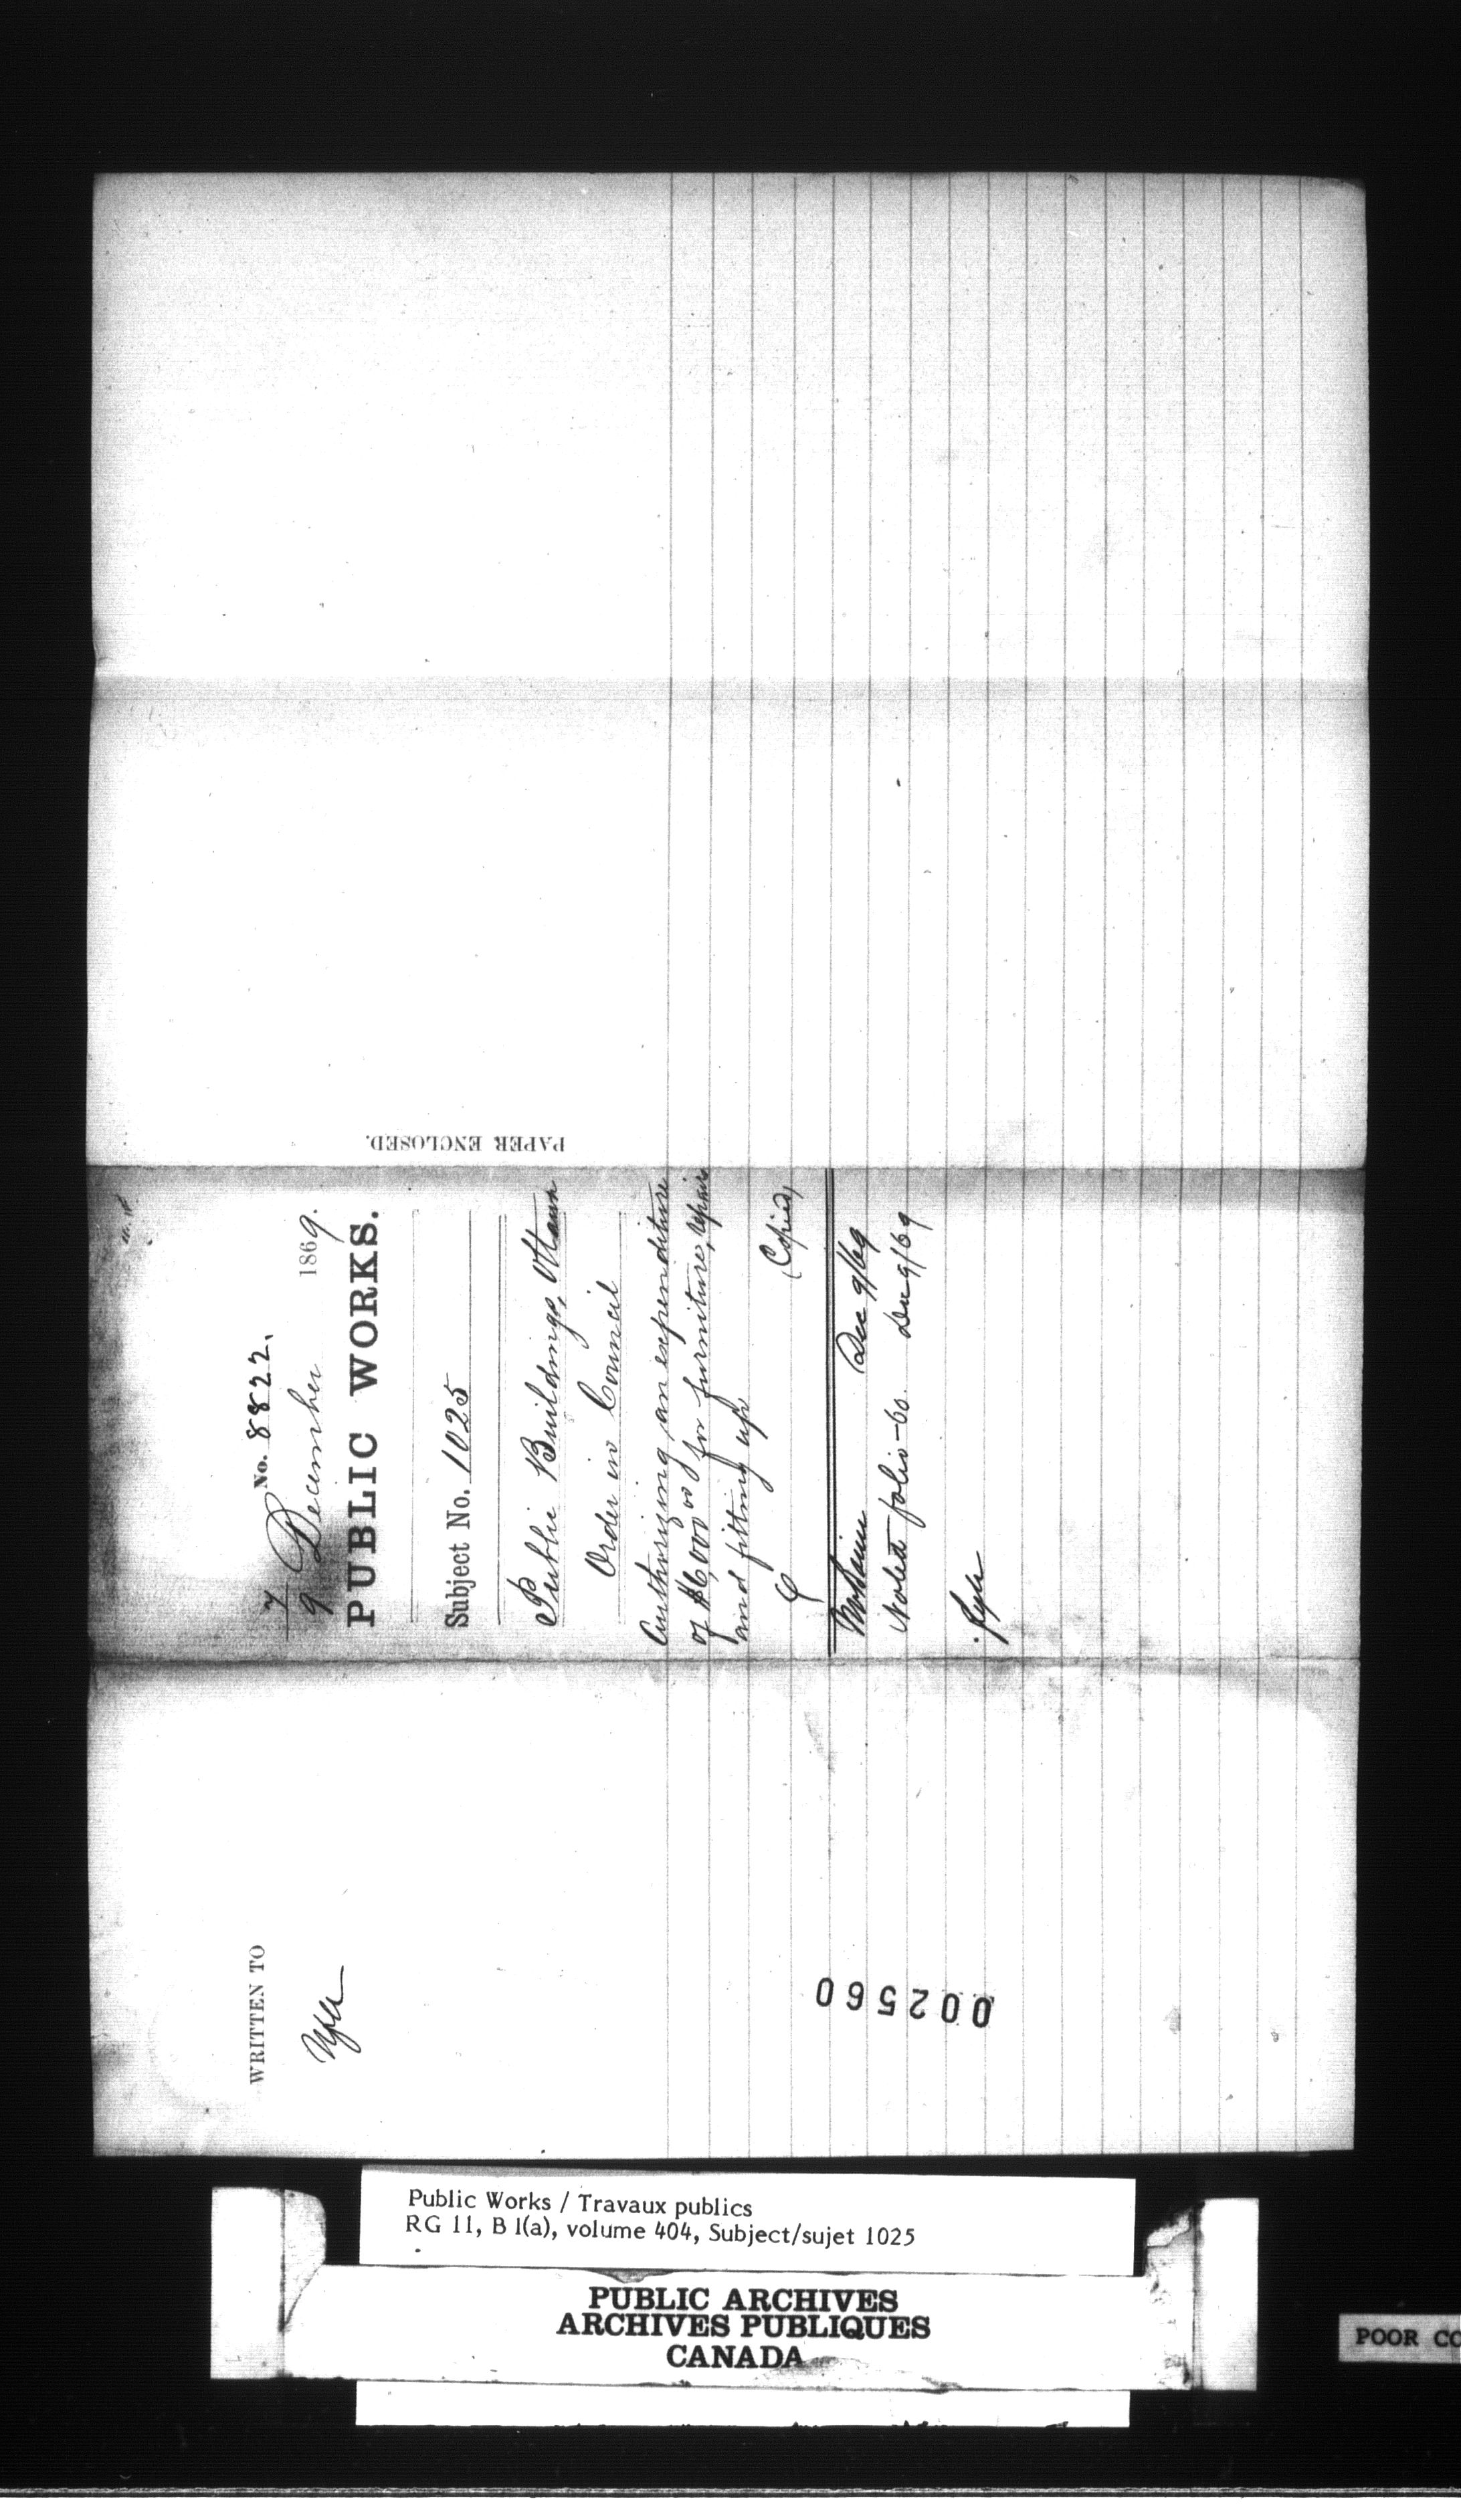 No. 8822.
7
9 December 1869.
PUBLIC WORKS.
Subject No. 1025
Public Buildings, Ottawa
Order in Council
Authorizing an expenditure
of $6,000 00 for furniture, repairs
and fitting up
(Copied)
Dec 9/69
Noted folio-60. Dec 9/69
PAPER ENCLOSED.
WRITTEN TO
002560
Public Works / Travaux publics
RG 11, B 1(a), volume 404, Subject/sujet 1025
PUBLIC ARCHIVES
ARCHIVES PUBLIQUES
CANADA
POOR CO